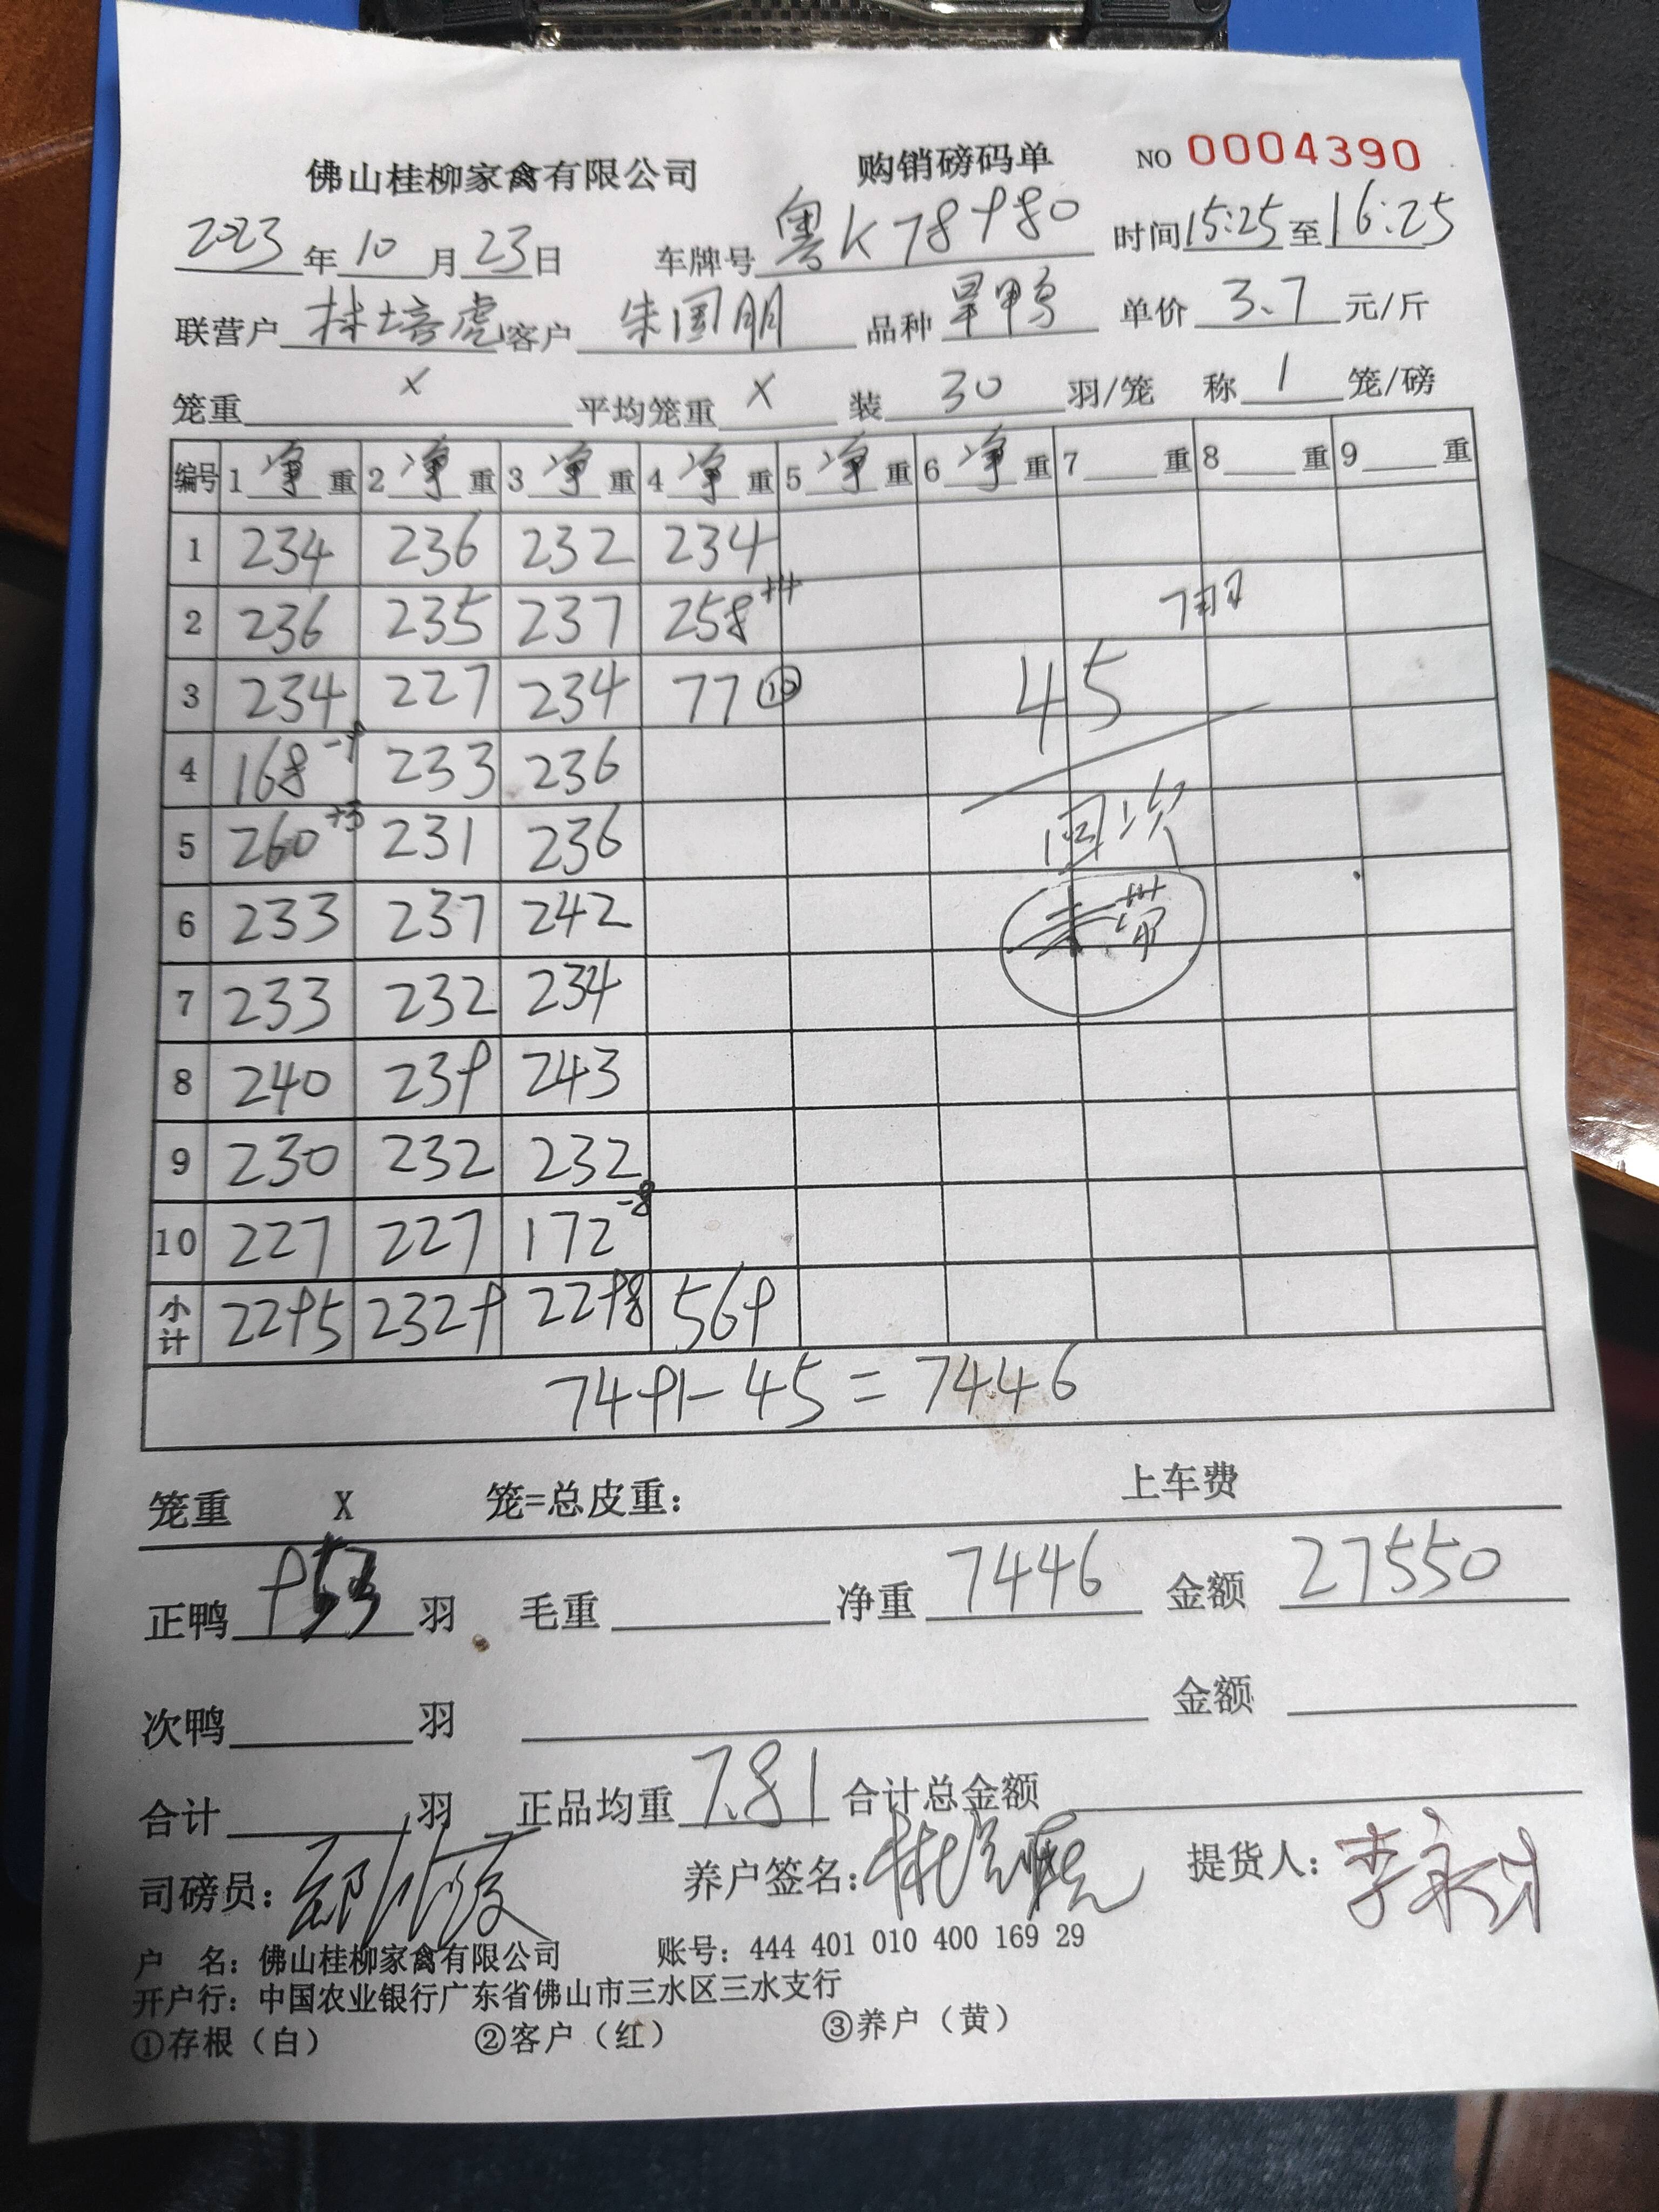 佛山桂柳家禽有限公司 购销磅码单 NO 0004390
2023年10月23日 车牌号 粤K78980 时间15:25至16:25
联营户 林培虎 客户 朱国朋 品种 旱鸭 单价 3.7 元/斤
笼重 x 平均笼重 x 装 30 羽/笼 称 1 笼/磅
编号 1 净 重 2 净 重 3 净 重 4 净 重 5 净 重 6 净 重 7 重 8 重 9 重
1 234 236 232 234
2 236 235 237 258+4
3 234 227 234 77⑩ 45
4 168-9 233 236
5 260+3 231 236 次
6 233 237 242 未带
7 233 232 234
8 240 239 243
9 230 232 232
10 227 227 172-8
小计 2295 2329 2298 569
7491-45=7446
笼重 X 笼=总皮重: 上车费
正鸭 953 羽 毛重 净重 7446 金额 27550
次鸭 羽 金额
合计 羽 正品均重 7.81 合计总金额
司磅员: 养户签名: 提货人:
户 名:佛山桂柳家禽有限公司 账号:444 401 010 400 169 29
开户行:中国农业银行广东省佛山市三水区三水支行
①存根(白) ②客户(红) ③养户(黄)